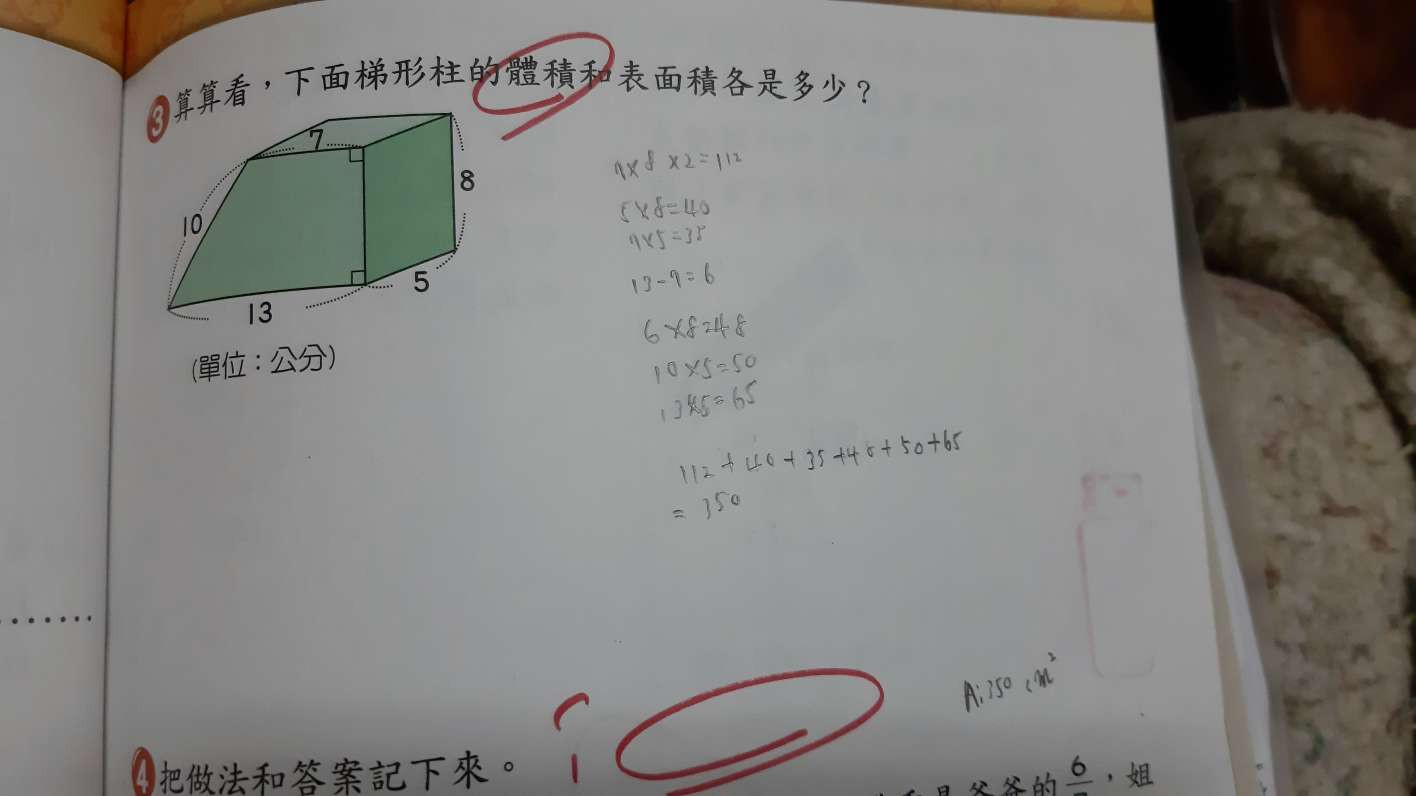 3 算算看,下面梯形柱的體積和表面積各是多少?
7
8
10
5
13
(單位:公分)
7×8×2=112
5×8=40
7×5=35
13-7=6
6×8=48
10×5=50
13×5=65
112+40+35+48+50+65
=350
A:350cm²
4 把做法和答案記下來。
是爸爸的 6
,姐